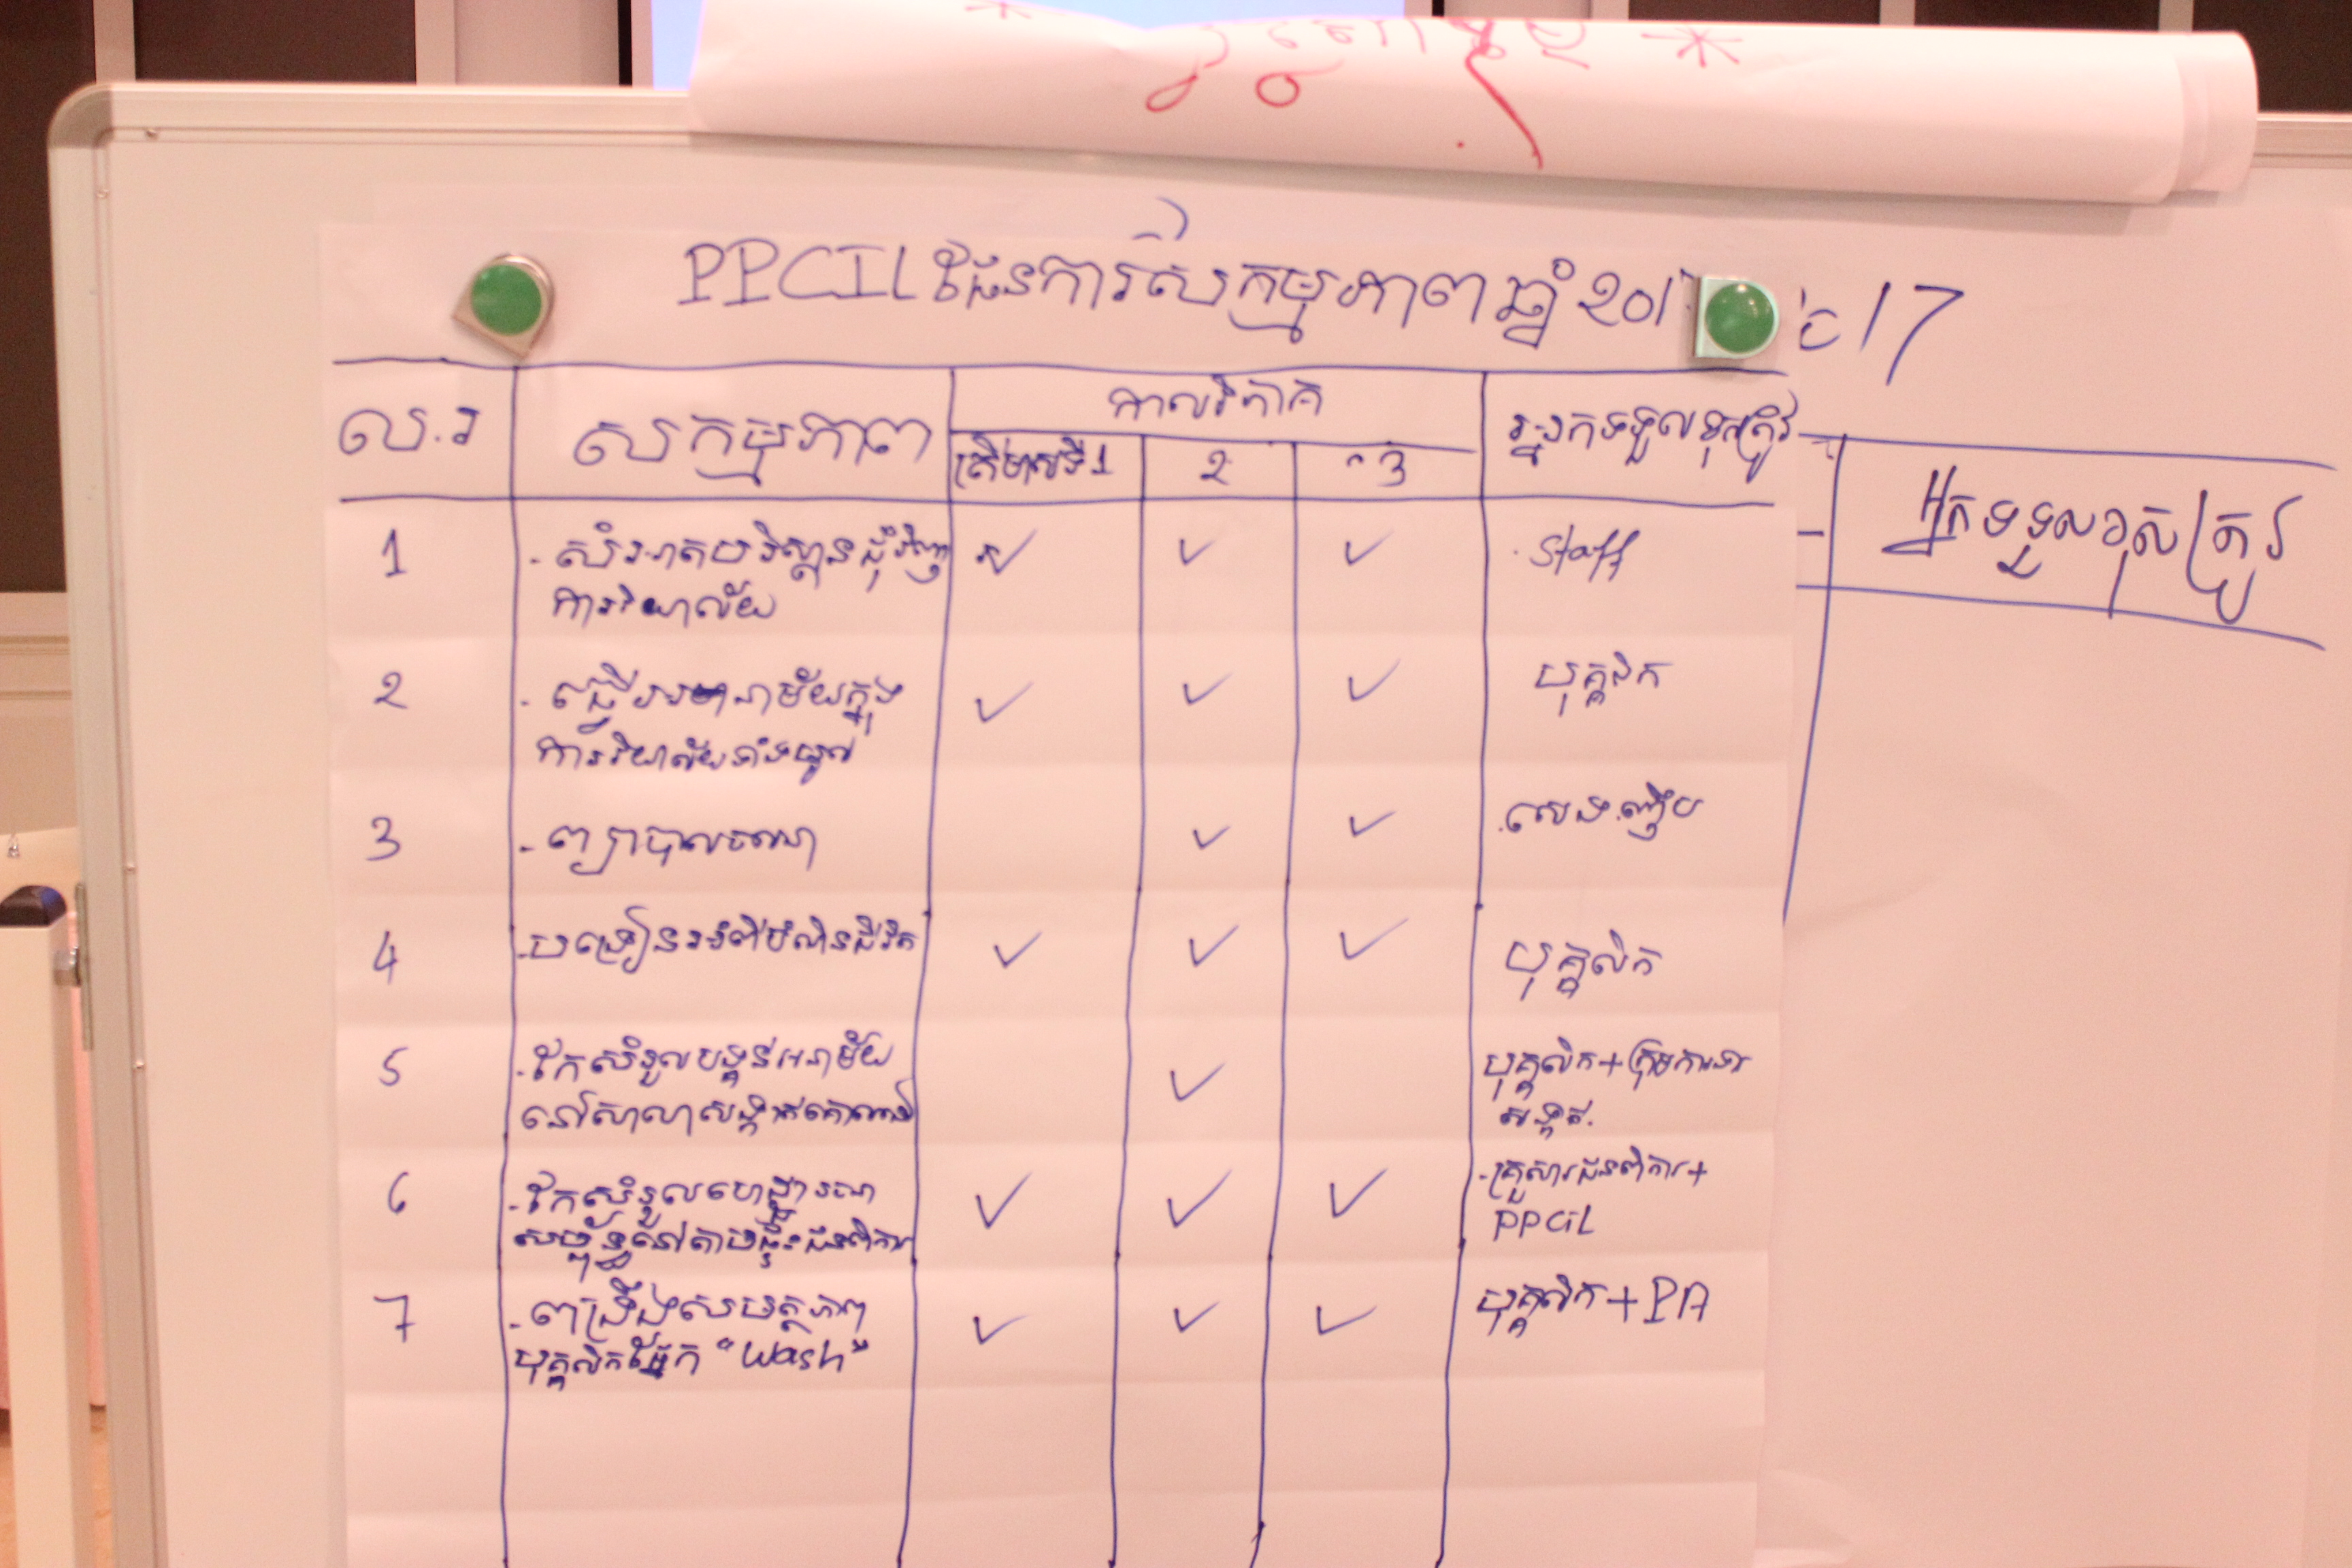 PPCIL ផែនការសកម្មភាពឆ្នាំ 201
017
ល.រ
សកម្មភាព
កាលវិភាគ
អ្នកទទួលខុសត្រូវ
ត្រីមាសទី1
2
3
អ្នកទទួលខុសត្រូវ
1
- សំអាតបរិស្ថានជុំវិញ
ការិយាល័យ
Staff
2
- ធ្វើអនាម័យក្នុង
ការិយាល័យទាំងមូល
បុគ្គលិក
3
- ព្យាបាល
4
- បង្រៀនអំពីបំណិនជីវិត
បុគ្គលិក
5
- កែសំរួលបង្គន់អនាម័យ
នៅសាលាសង្កាត់
បុគ្គលិក + ក្រុមការងារ
សង្កាត់.
6
- កែសំរួលហេដ្ឋារចនា
សម្ព័ន្ធនៅតាមផ្ទះជនពិការ
- គ្រួសារជនពិការ +
PPCiL
7
- ពង្រឹងសមត្ថភាព
បុគ្គលិកផ្នែក "Wash"
បុគ្គលិក + PA